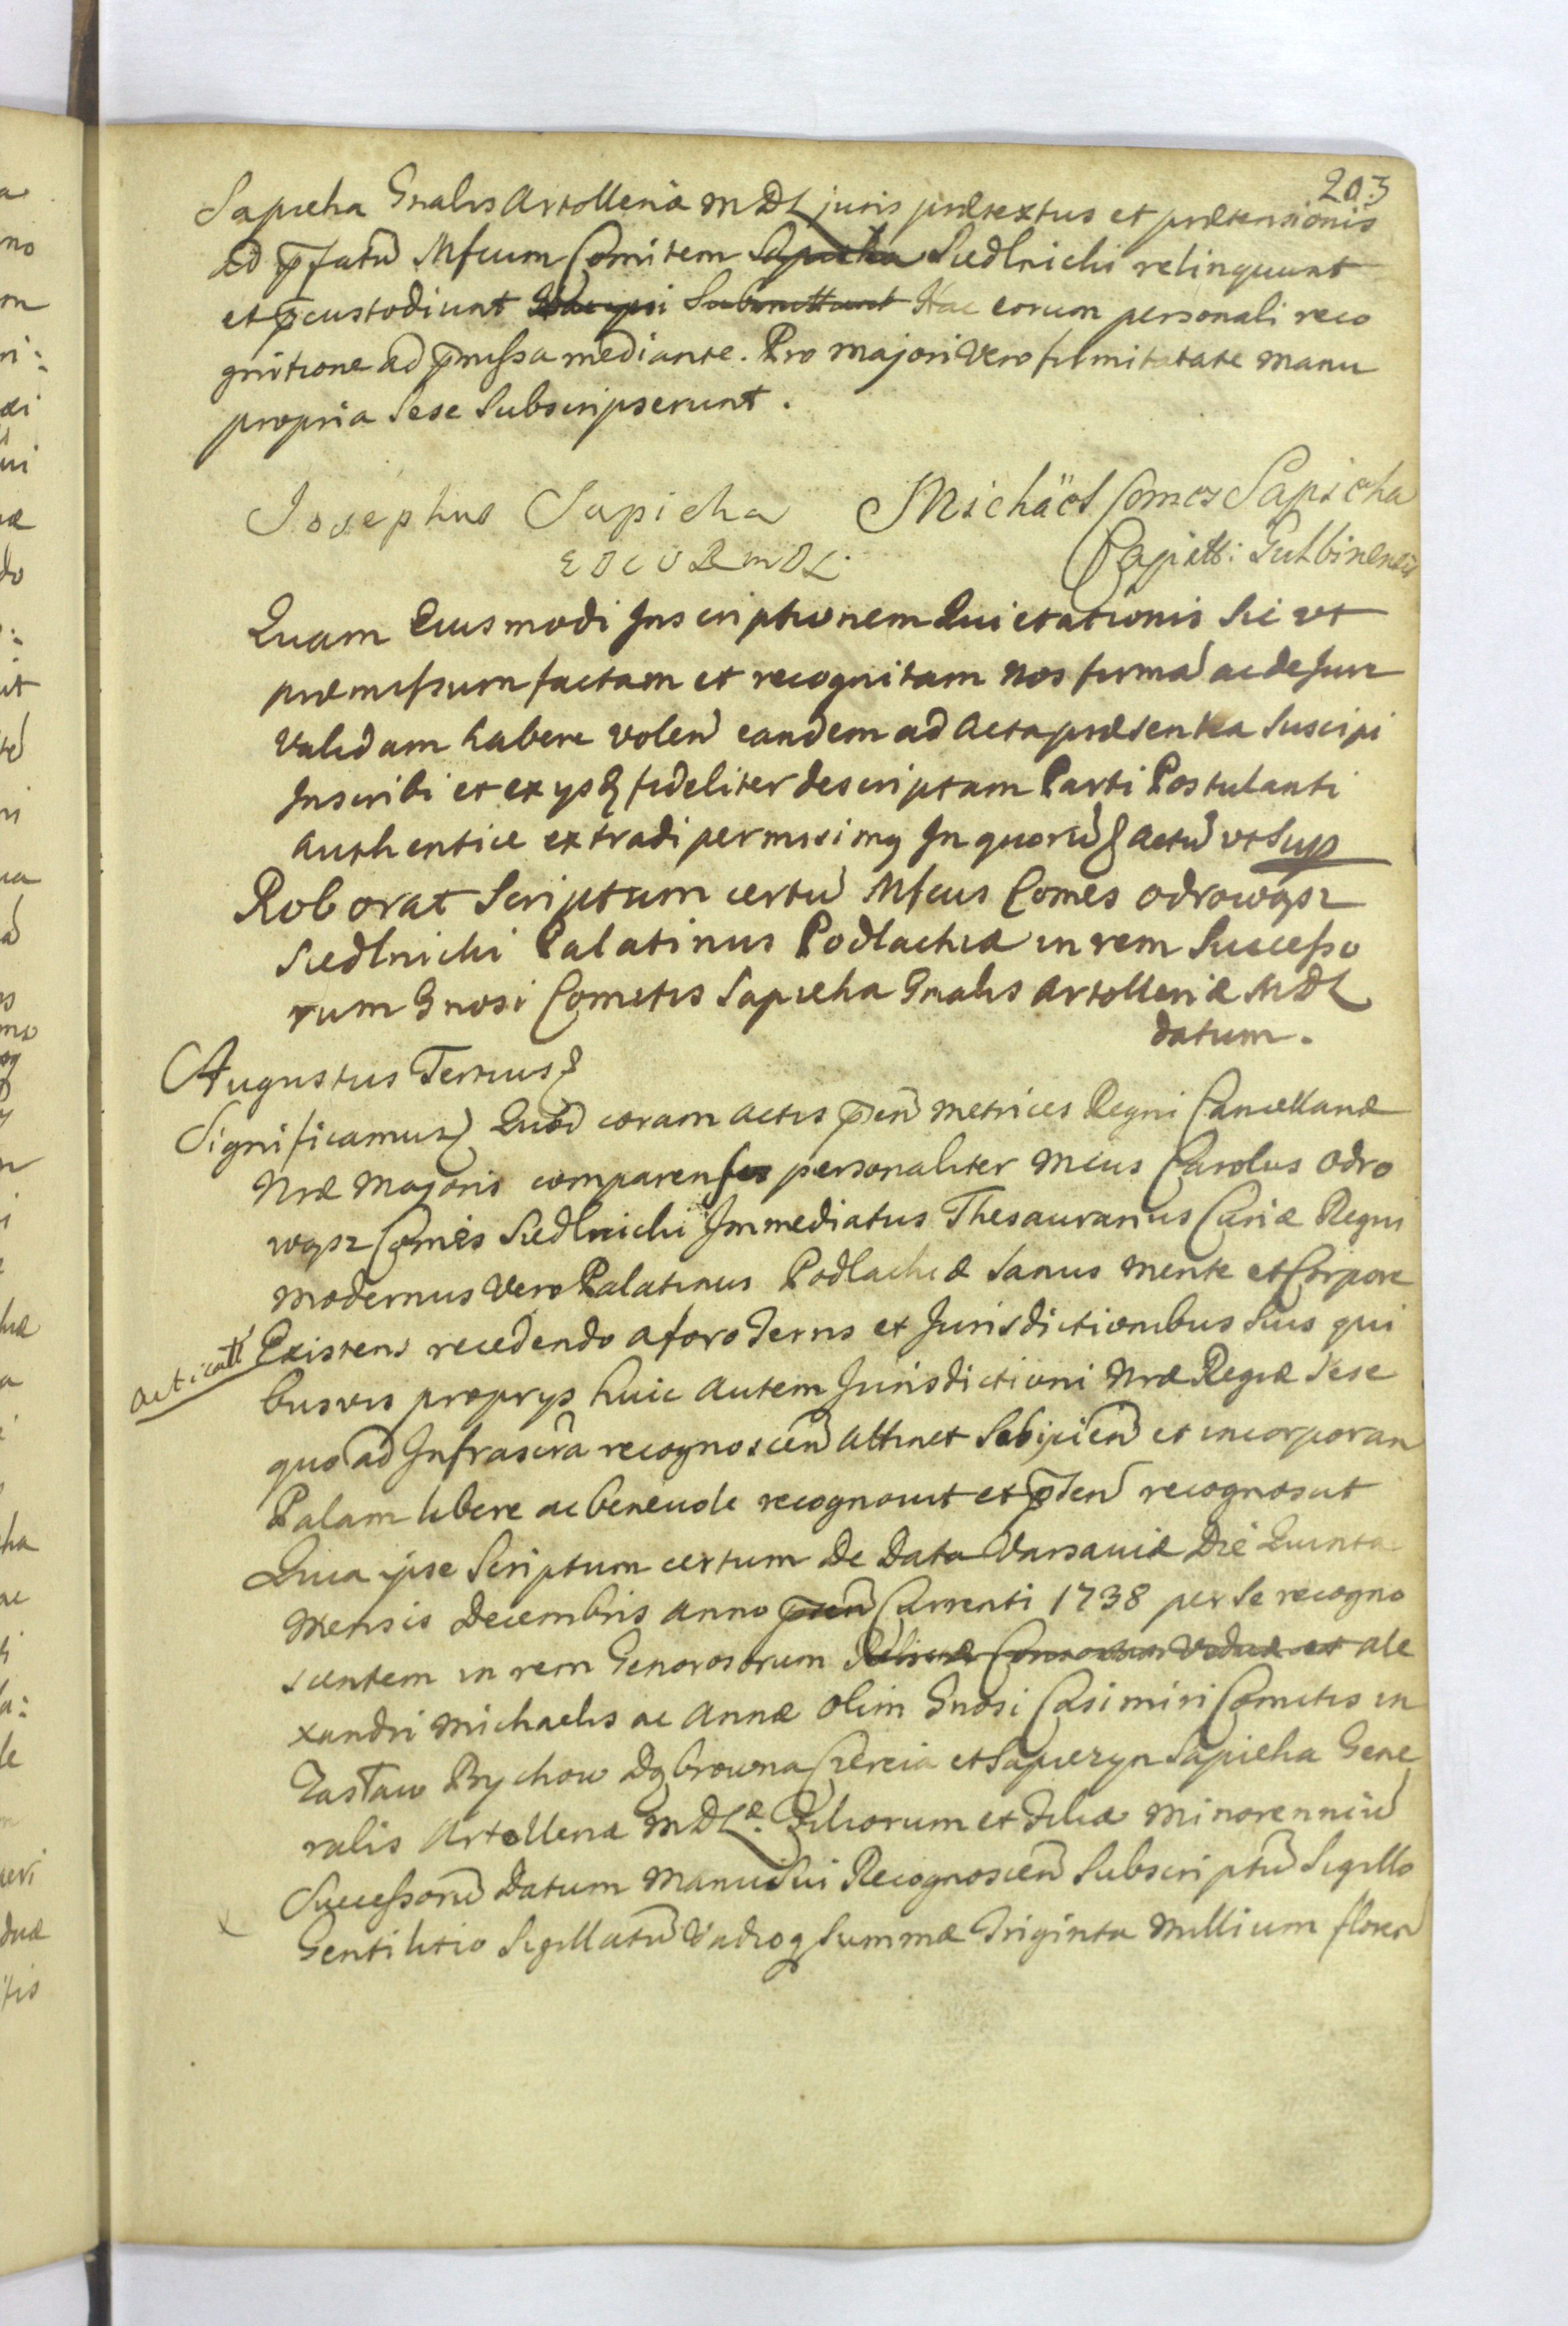 203
Sapieha Gnalis Artolleriæ MDL juris prætextus et prætensionis
ad p̄fatū Mfcum Comitem Sapieha Siedlnicki relinquunt
et p̄custodiunt Submittunt Hac eorum personali reco
gnitione ad p̄missa mediante. Pro majori vero firmitatate manu
propria Sese Subscripserunt.
Josephus Sapieha Michäel Comes Sapieha
Capitt: Guthbinensis
Quam Eiusmodi Inscriptionem Quietationis Sic ut
præmissum factam et recognitam nos firmā ac de jure
validam habere volen̄ eandem ad Acta præsentia Suscipi
Inscribi et ex ysq fideliter descriptam Parti Postulanti
Authentice extradi permisimq In quorū Actū ut Sup
Roborat Scriptum certū Mfcus Comes Odrowąsz
Siedlnicki Palatinus Podlachiæ in rem Successo
rum Gnosi Comitis Sapieha Gnalis Artolleriæ MDL
datum.
Augustus Tertius
Significamus Quod coram Actis p̄sen̄ Metrices Regni Cancellariæ
Nræ Majoris comparens personaliter Mcus Carolus Odro
wąsz Comes Siedlnicki Immediatus Thesaurarius Curiæ Regni
Modernus vero Palatinus Podlachiæ Sanus mente et Corpore
acticatt Existens recedendo a foro Terris et Jurisdictionibus Suis qui
busvis proprys huic autem Jurisdictioni Nræ Regiæ Sese
quo ad Infrascra recognoscen̄ attinet Sobijcien̄ et incorporan
Palam libere ac benevole recognovit et p̄sen̄ recognoscit
Quia ipse Scriptum certum De Data Varsaviæ Die Quinta
Mensis Decembris Anno p̄sen̄ Currenti 1738 per Se recogno
scentem in rem Generosorum Relictæ Consortis Viduæ et Ale
xandri Michaelis ac Annæ olim Gnosi Casimiri Comitis in
Zasław Bychow Dąbrowna Czereia et Sapiezyn Sapieha Gene
ralis Artolleriæ MDLæ. Filiorum et Filiæ Minorenniū
Successorū Datum Manu Sui Recognoscen̄ Subscriptū Sigillo
Gentilitio Sigillatū Vadioq Summæ Triginta Millium floren̄